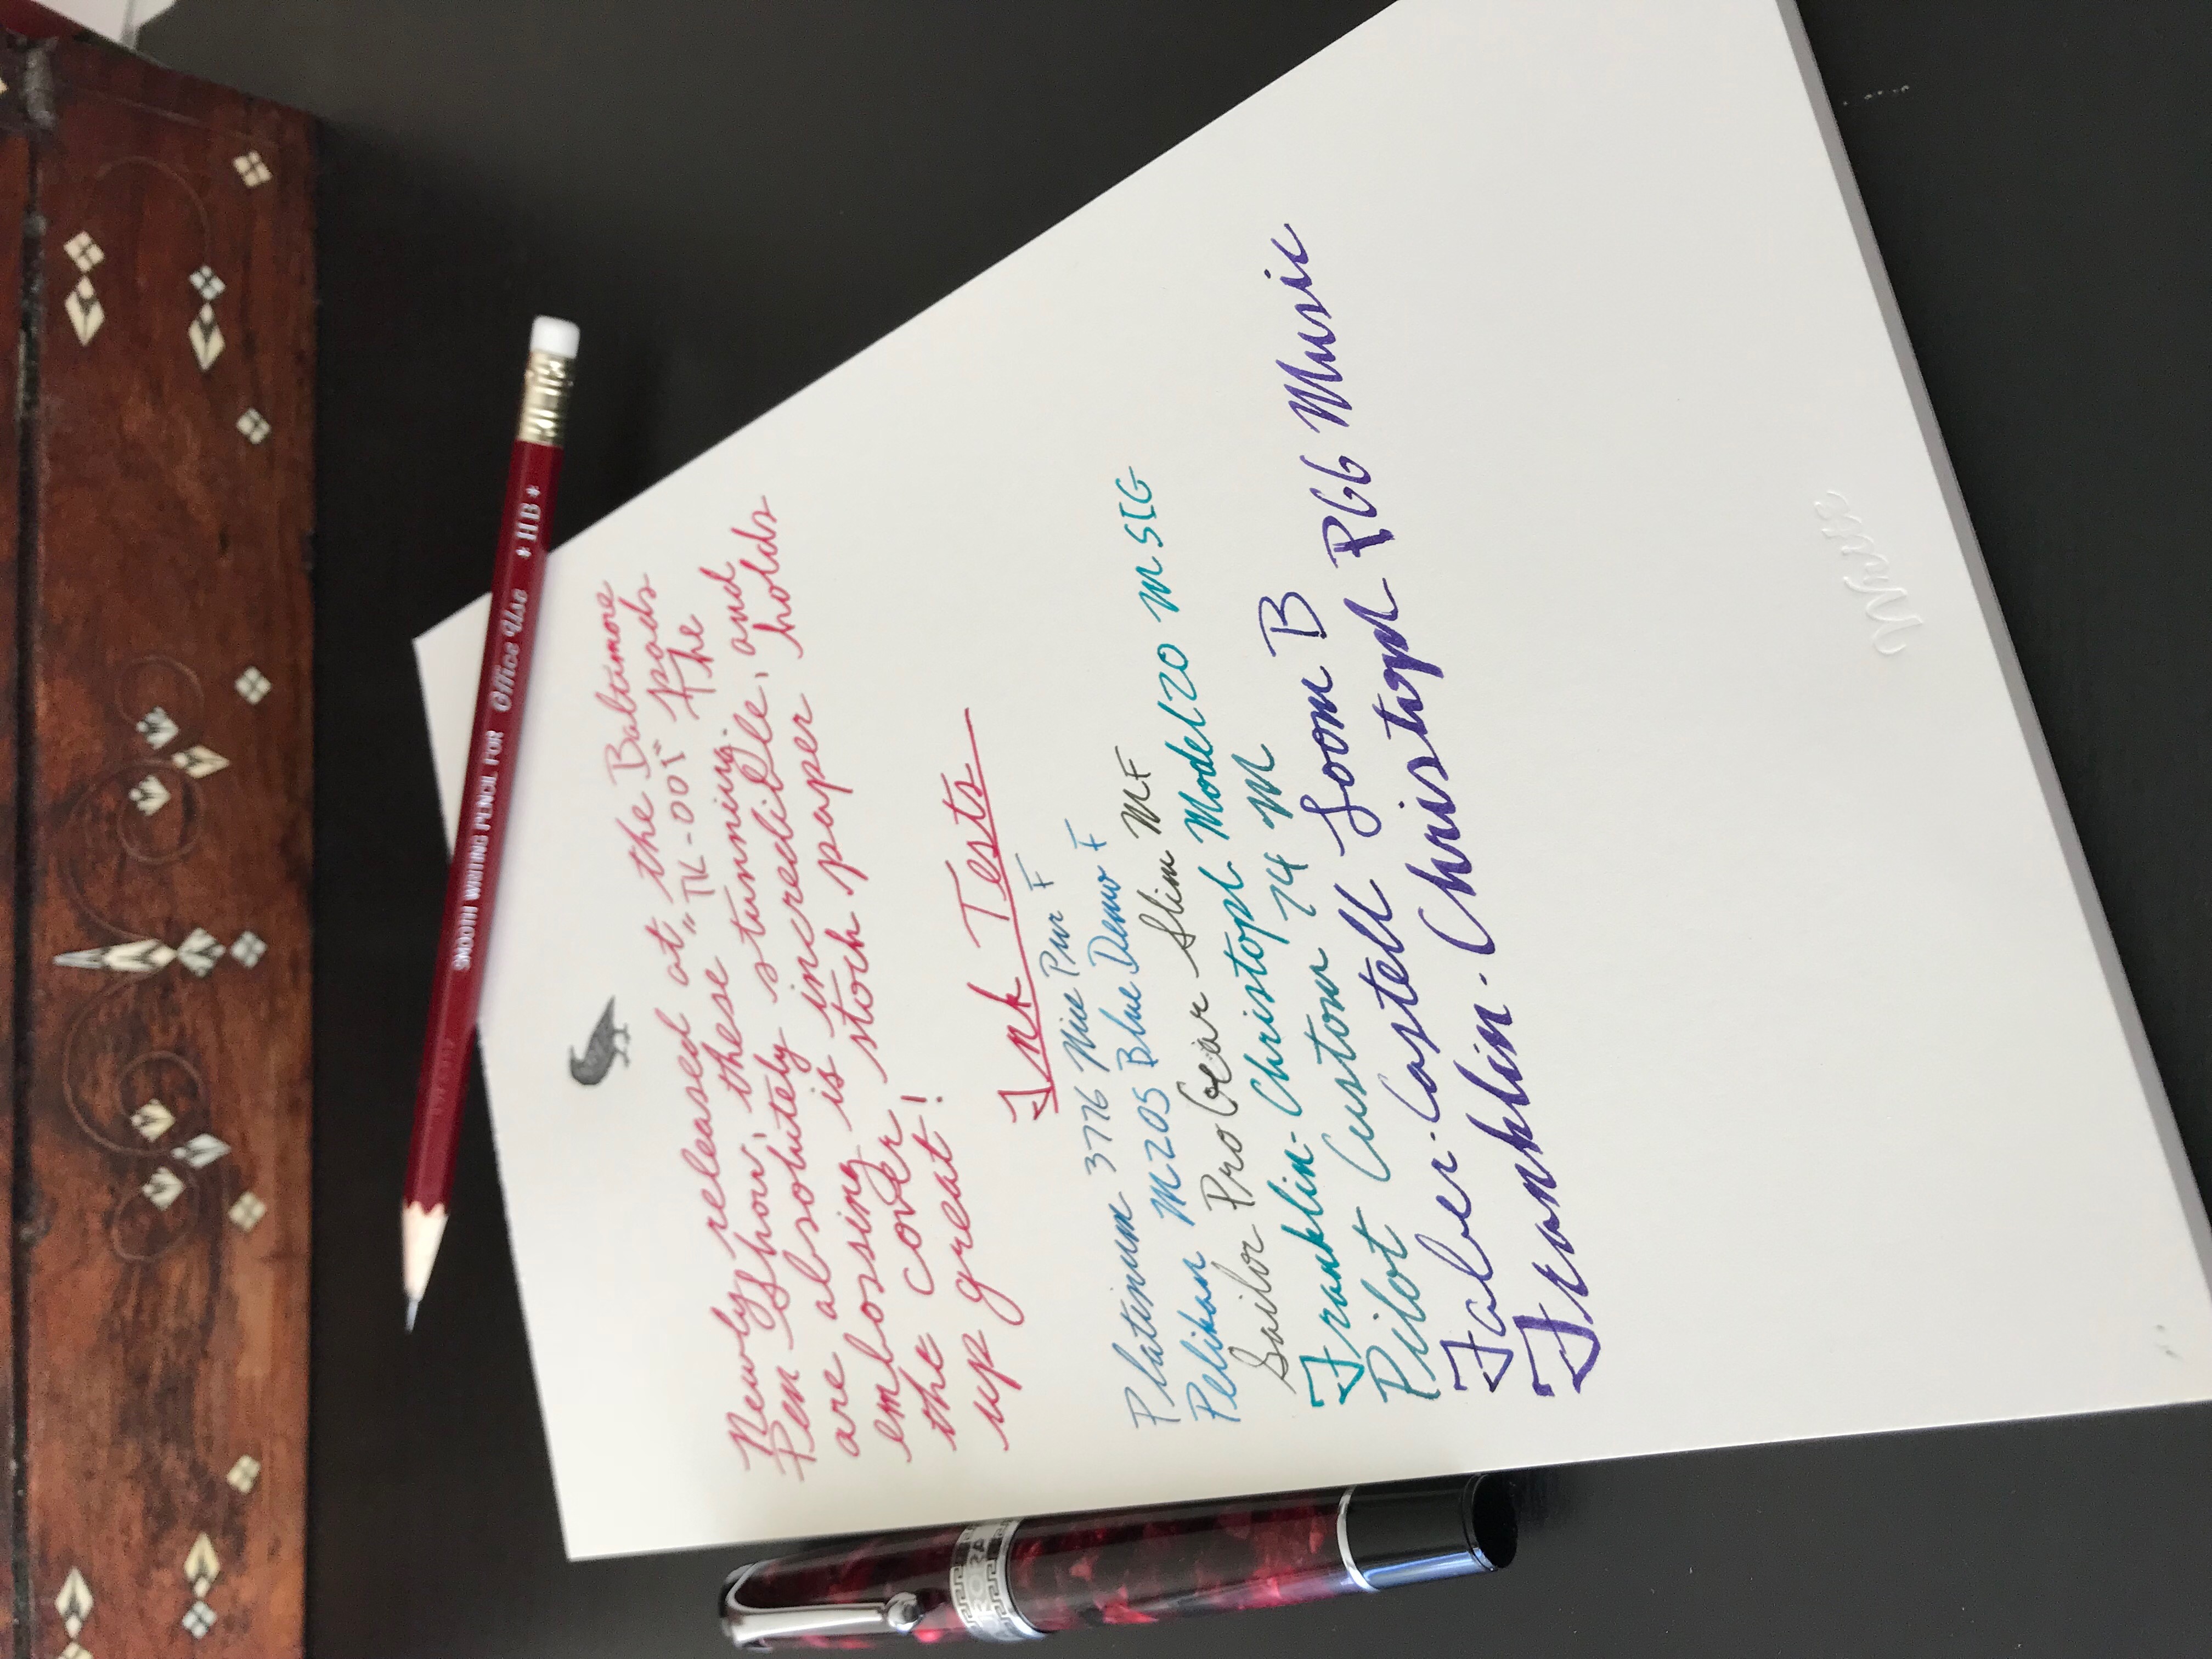 Newly released at the Baltimore
Pen Show, these "TK-001" pads
are absolutely stunning. The
embossing is incredible, and
the cover stock paper holds
up great!
Ink Tests
Platinum 3776 Nice Pur F
Pelikan M205 Blue Demo F
Sailor Pro Gear Slim MF
Franklin-Christoph Model 20 M SIG
Pilot Custom 74 M
Faber-Castell Loom B
Franklin-Christoph P66 Music
SMOOTH WRITING PENCIL FOR Office Use * HB *
AURORA